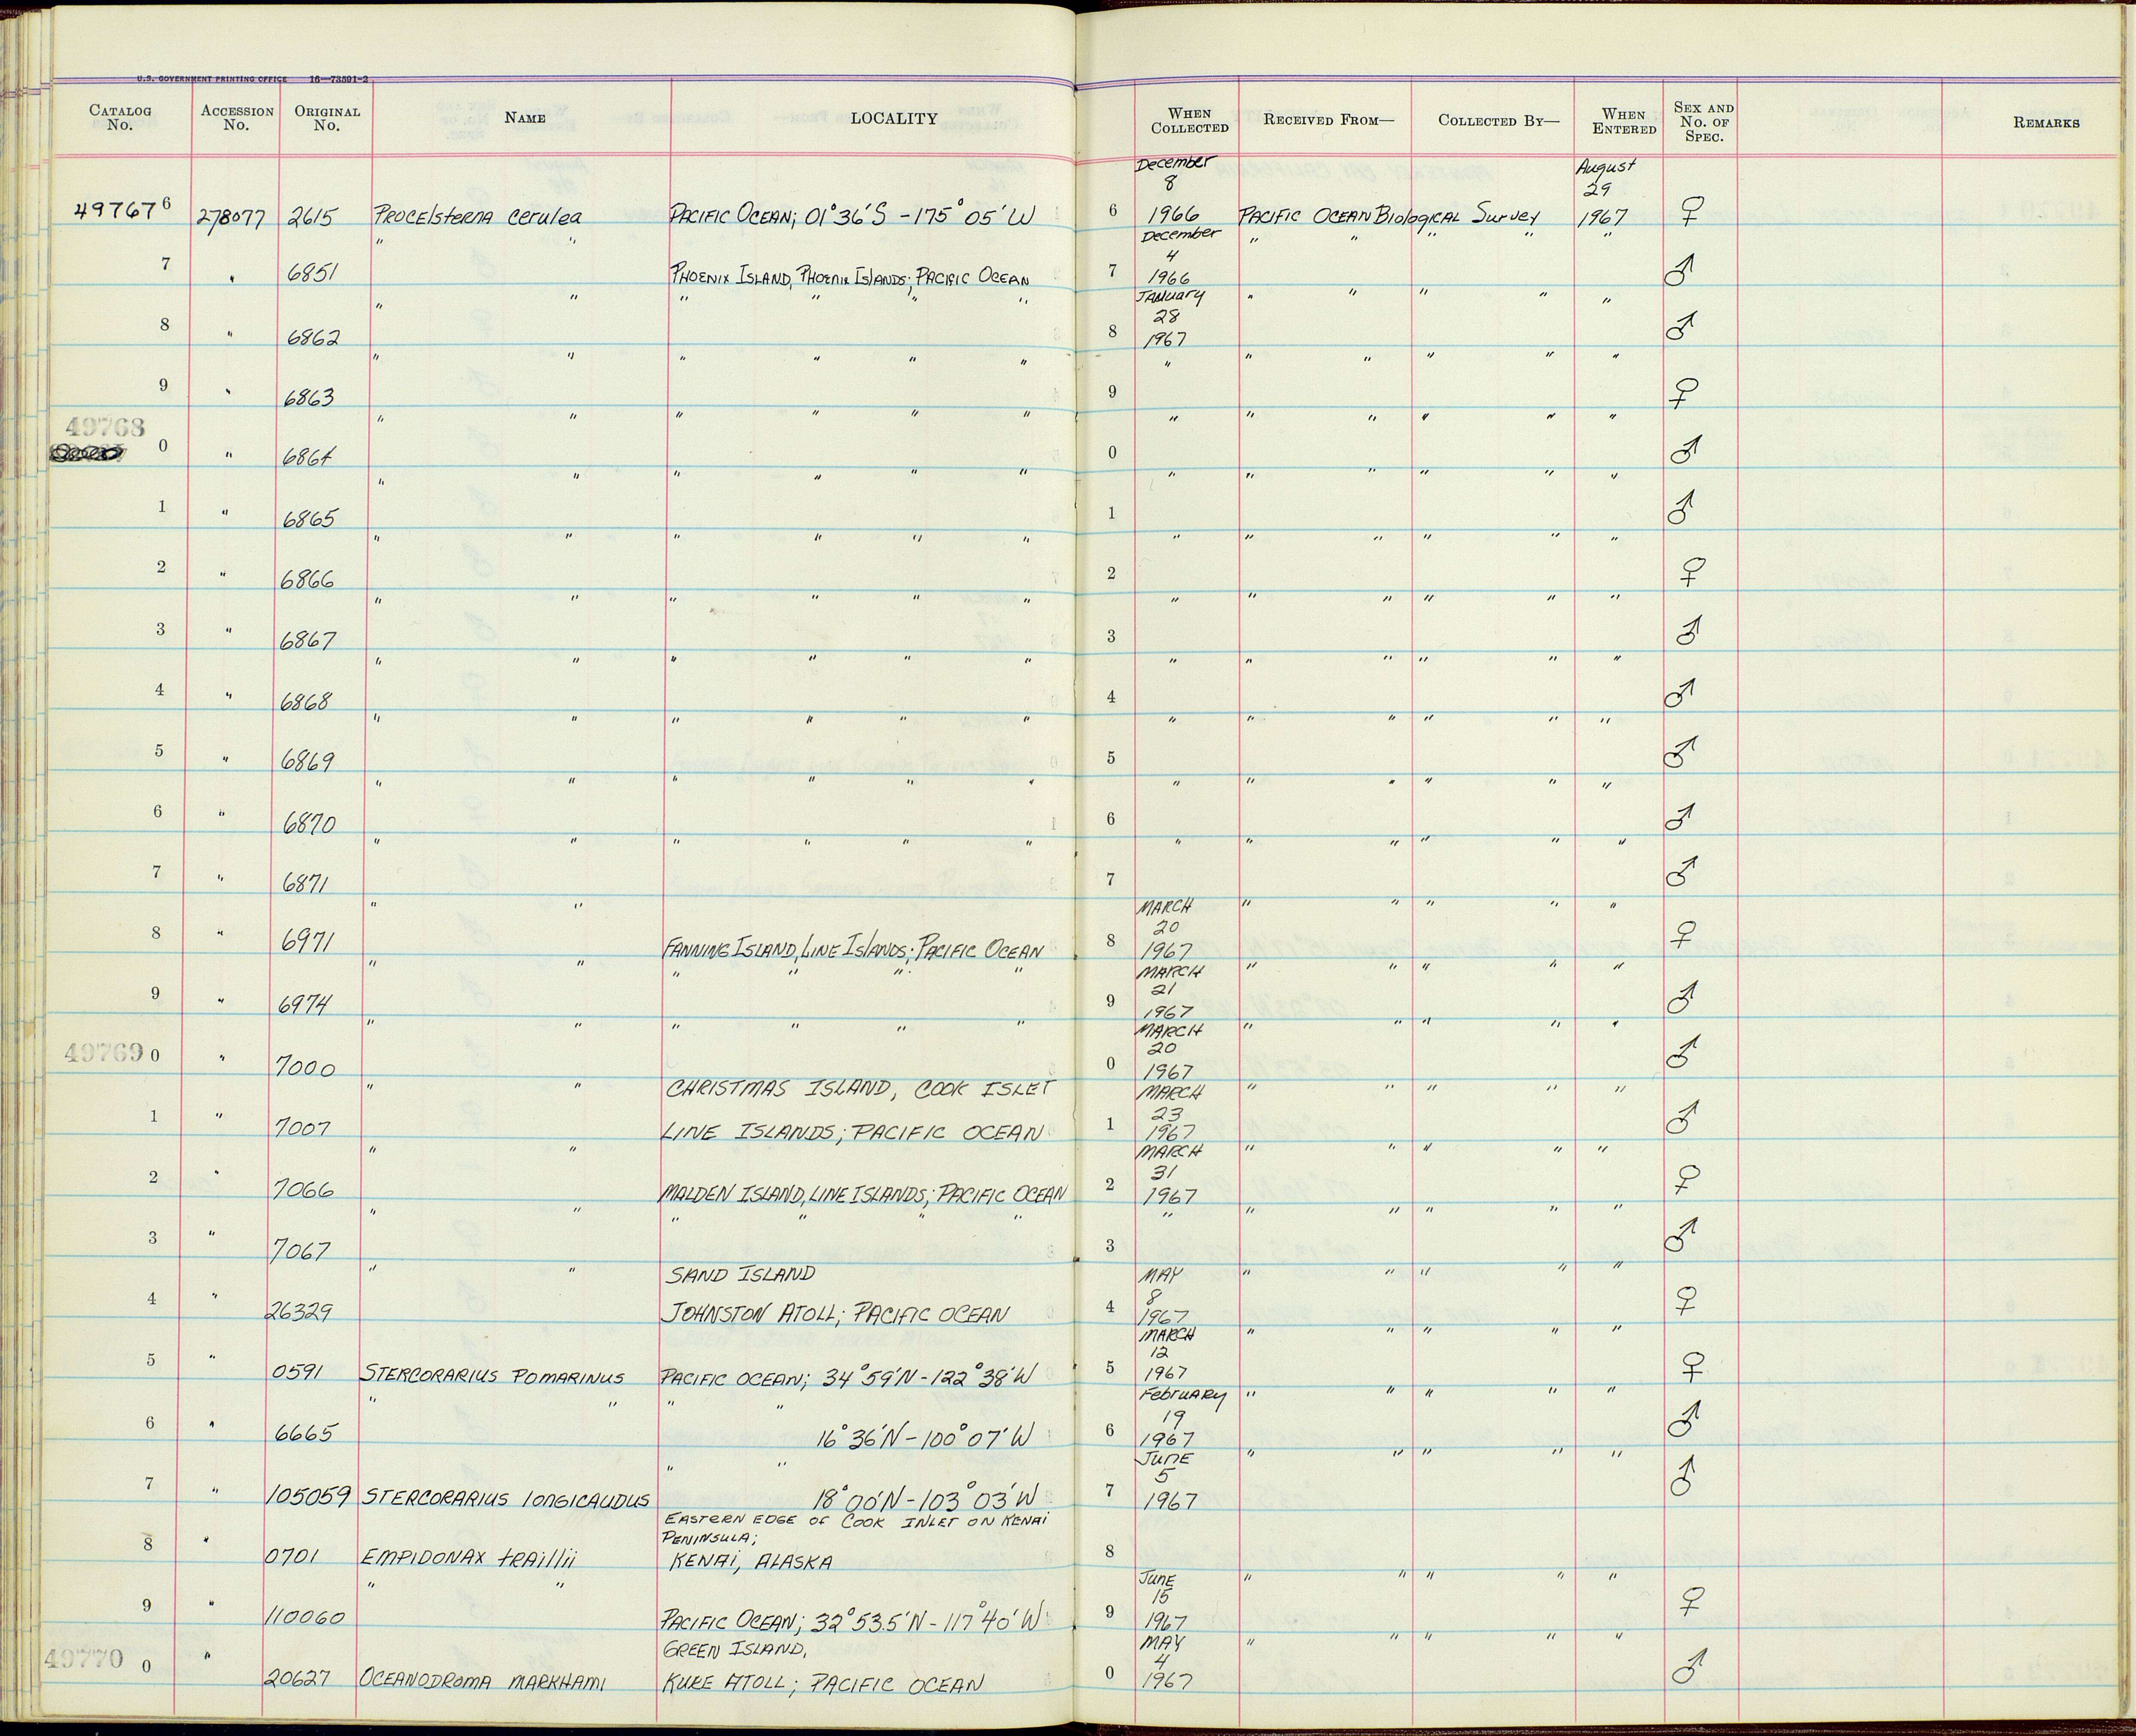 U.S. GOVERNMENT PRINTING OFFICE 16—73591-2
CATALOG No. ACCESSION No. ORIGINAL No. NAME LOCALITY WHEN COLLECTED RECEIVED FROM— COLLECTED BY— WHEN ENTERED SEX AND No. OF SPEC. REMARKS
December August
8 29
49767 6 278077 2615 Procelsterna cerulea PACIFIC OCEAN; 01°36'S - 175°05'W 6 1966 PACIFIC OCEAN Biological Survey 1967 ♀
" " December " " " " "
4
7 " 6851 PHOENIX ISLAND, PHOENIX ISLANDS; PACIFIC OCEAN 7 1966 ♂
" " " " " " January " " " " "
28
8 " 6862 8 1967 ♂
" " " " " " " " " " " "
9 " 6863 9 ♀
" " " " " " " " " " " "
49768 0 " 6864 0 ♂
" " " " " " " " " " " "
1 " 6865 1 ♂
" " " " " " " " " " " "
2 " 6866 2 ♀
" " " " " " " " " " " "
3 " 6867 3 ♂
" " " " " " " " " " " "
4 " 6868 4 ♂
" " " " " " " " " " " "
5 " 6869 5 ♂
" " " " " " " " " " " "
6 " 6870 6 ♂
" " " " " " " " " " " "
7 " 6871 7 ♂
" " MARCH " " " " "
20
8 " 6971 FANNING ISLAND, LINE ISLANDS; PACIFIC OCEAN 8 1967 ♀
" " " " " " MARCH " " " " "
21
9 " 6974 9 1967 ♂
" " " " " " MARCH " " " " "
20
49769 0 " 7000 0 1967 ♂
" " CHRISTMAS ISLAND, COOK ISLET MARCH " " " " "
23
1 " 7007 LINE ISLANDS; PACIFIC OCEAN 1 1967 ♂
" " MARCH " " " " "
31
2 " 7066 MALDEN ISLAND, LINE ISLANDS; PACIFIC OCEAN 2 1967 ♀
" " " " " " " " " " " "
3 " 7067 3 ♂
" " SAND ISLAND MAY " " " " "
8
4 " 26329 JOHNSTON ATOLL; PACIFIC OCEAN 4 1967 ♀
MARCH " " " " "
12
5 " 0591 STERCORARIUS POMARINUS PACIFIC OCEAN; 34°59'N - 122°38'W 5 1967 ♀
" " " " February " " " " "
19
6 " 6665 16°36'N - 100°07'W 6 1967 ♂
" " June " " " " "
5
7 " 105059 STERCORARIUS longicaudus 18°00'N - 103°03'W 7 1967 ♂
EASTERN EDGE OF COOK INLET ON KENAI
PENINSULA;
8 " 0701 EMPIDONAX traillii KENAI, ALASKA 8
" " June " " " " "
15
9 " 110060 PACIFIC OCEAN; 32°53.5'N - 117°40'W 9 1967 ♀
GREEN ISLAND, MAY " " " " "
4
49770 0 " 20627 OCEANODROMA MARKHAMI KURE ATOLL; PACIFIC OCEAN 0 1967 ♂